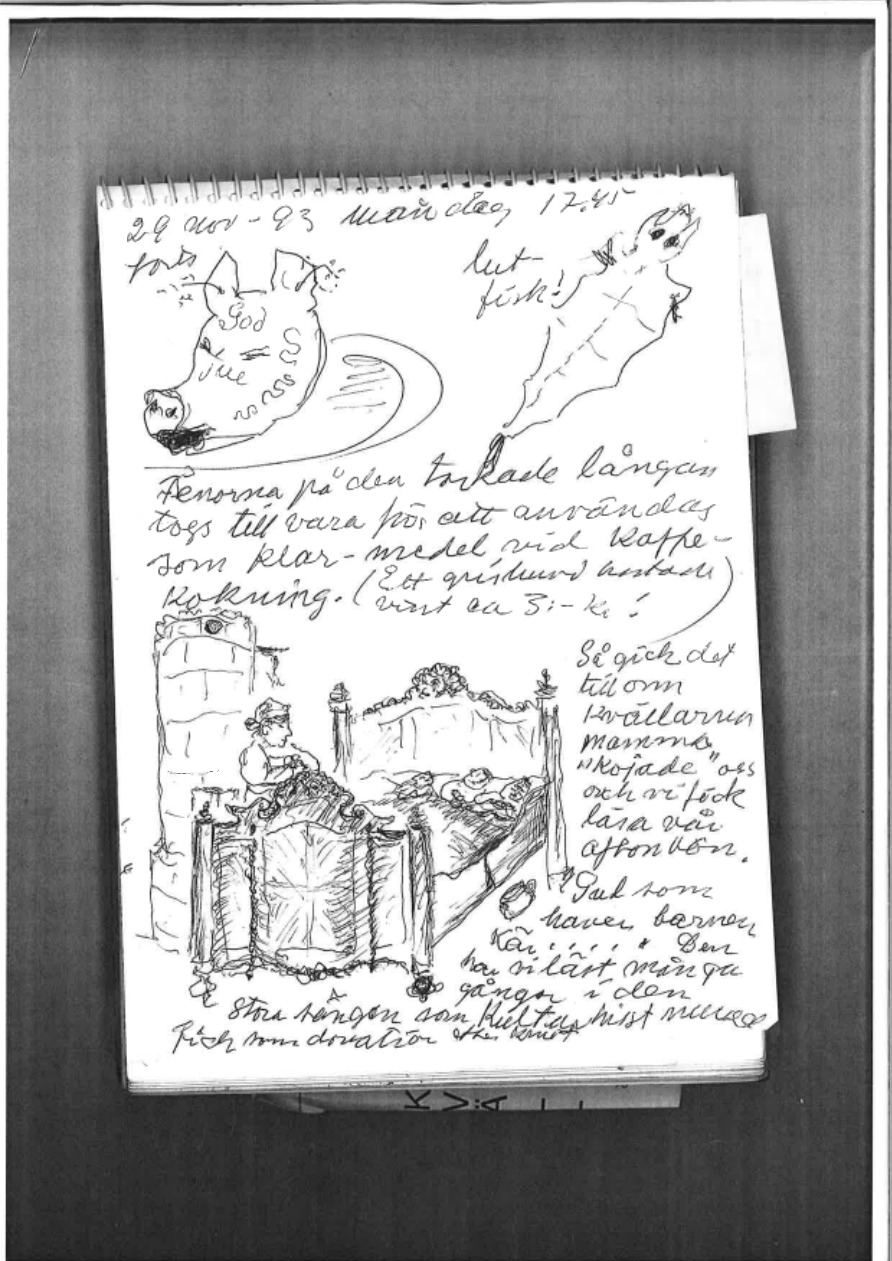 29 nov - 93 måndag 17.45
forts
God
jul
lut-
fisk!
Fenorna på den torkade långan
togs till vara för att användas
som klar-medel vid kaffe-
kokning. (Ett grishuvud kostade
visst ca 3:- kr!)
Så gick det
till om
kvällarna
mamma
"kojade" oss
och vi fick
läsa vår
aftonbön.
"Gud som
haver barnen
kär....." Den
har vi läst många
gånger i den
stora sängen som Kultu hist museet
fick som donation efter
K
V
Ä